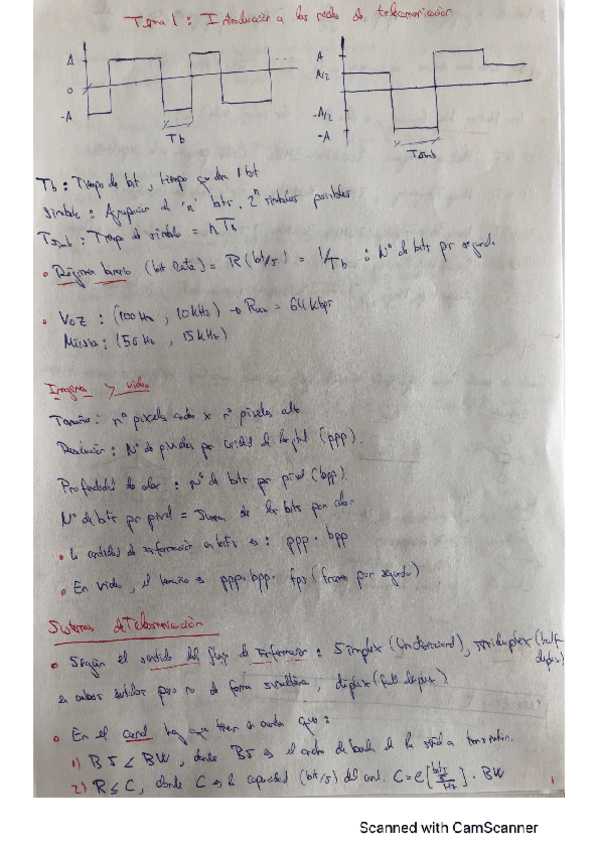 Tema 1: Introducción a las redes de telecomunicación
A
0
-A
Tb
A
A/2
-A/2
-A
Tsimb
Tb: Tiempo de bit, tiempo que dura 1 bit
Símbolo: Agrupación de 'n' bits. 2^n símbolos posibles
Tsimb: Tiempo de símbolo = nTb
• Régimen binario (bit rate) = R (bit/s) = 1/Tb : Nº de bits por segundo
• Voz: (100Hz, 10kHz) → = 64 kbps
Música: (50Hz, 15kHz)
Imagen y video
Tamaño: nº pixeles ancho x nº pixeles alto
Resolución: Nº de pixeles por unidad de longitud (ppp).
Profundidad de color: Nº de bits por pixel (bpp)
Nº de bits por pixel = Suma de los bits por color
• La cantidad de información en bits es: ppp · bpp
• En video, el tamaño es ppp · bpp · fps (frame por segundo)
Sistemas de Telecomunicación
• Según el sentido del flujo de información: Simplex (Unidireccional), semiduplex (half duplex)
en ambos sentidos pero no de forma simultánea, duplex (full duplex)
• En el canal hay que tener en cuenta que:
1) BS < BW, donde BS es el ancho de banda de la señal a transmitir.
2) R ≤ C, donde C es la capacidad (bit/s) del canal. C = e [bit/s / Hz] · BW
1
Scanned with CamScanner